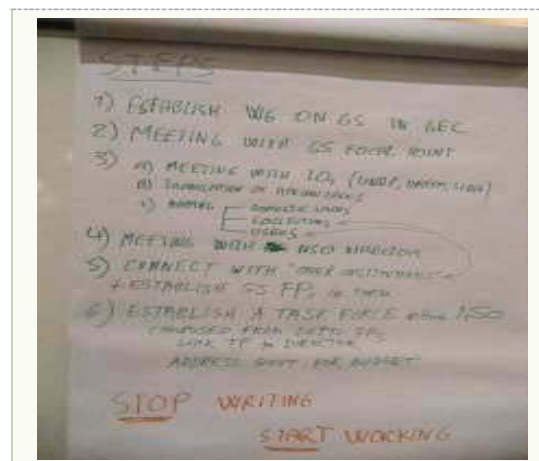 STEPS
1) ESTABLISH WG ON GS IN
2) MEETING WITH GS FOCAL POINT
3) a) MEETING WITH IOs (UNDP,
b) TRANSLATION OF
c)
USERS
4) MEETING WITH NSO
5) CONNECT WITH "OTHER INSTITUTIONS"
+ ESTABLISH GS FPs in them
6) ESTABLISH A TASK FORCE NSO
COMPOSED FROM
LINK TF to DIRECTOR
ADDRESS GOVT. FOR BUDGET
STOP WRITING
START WORKING